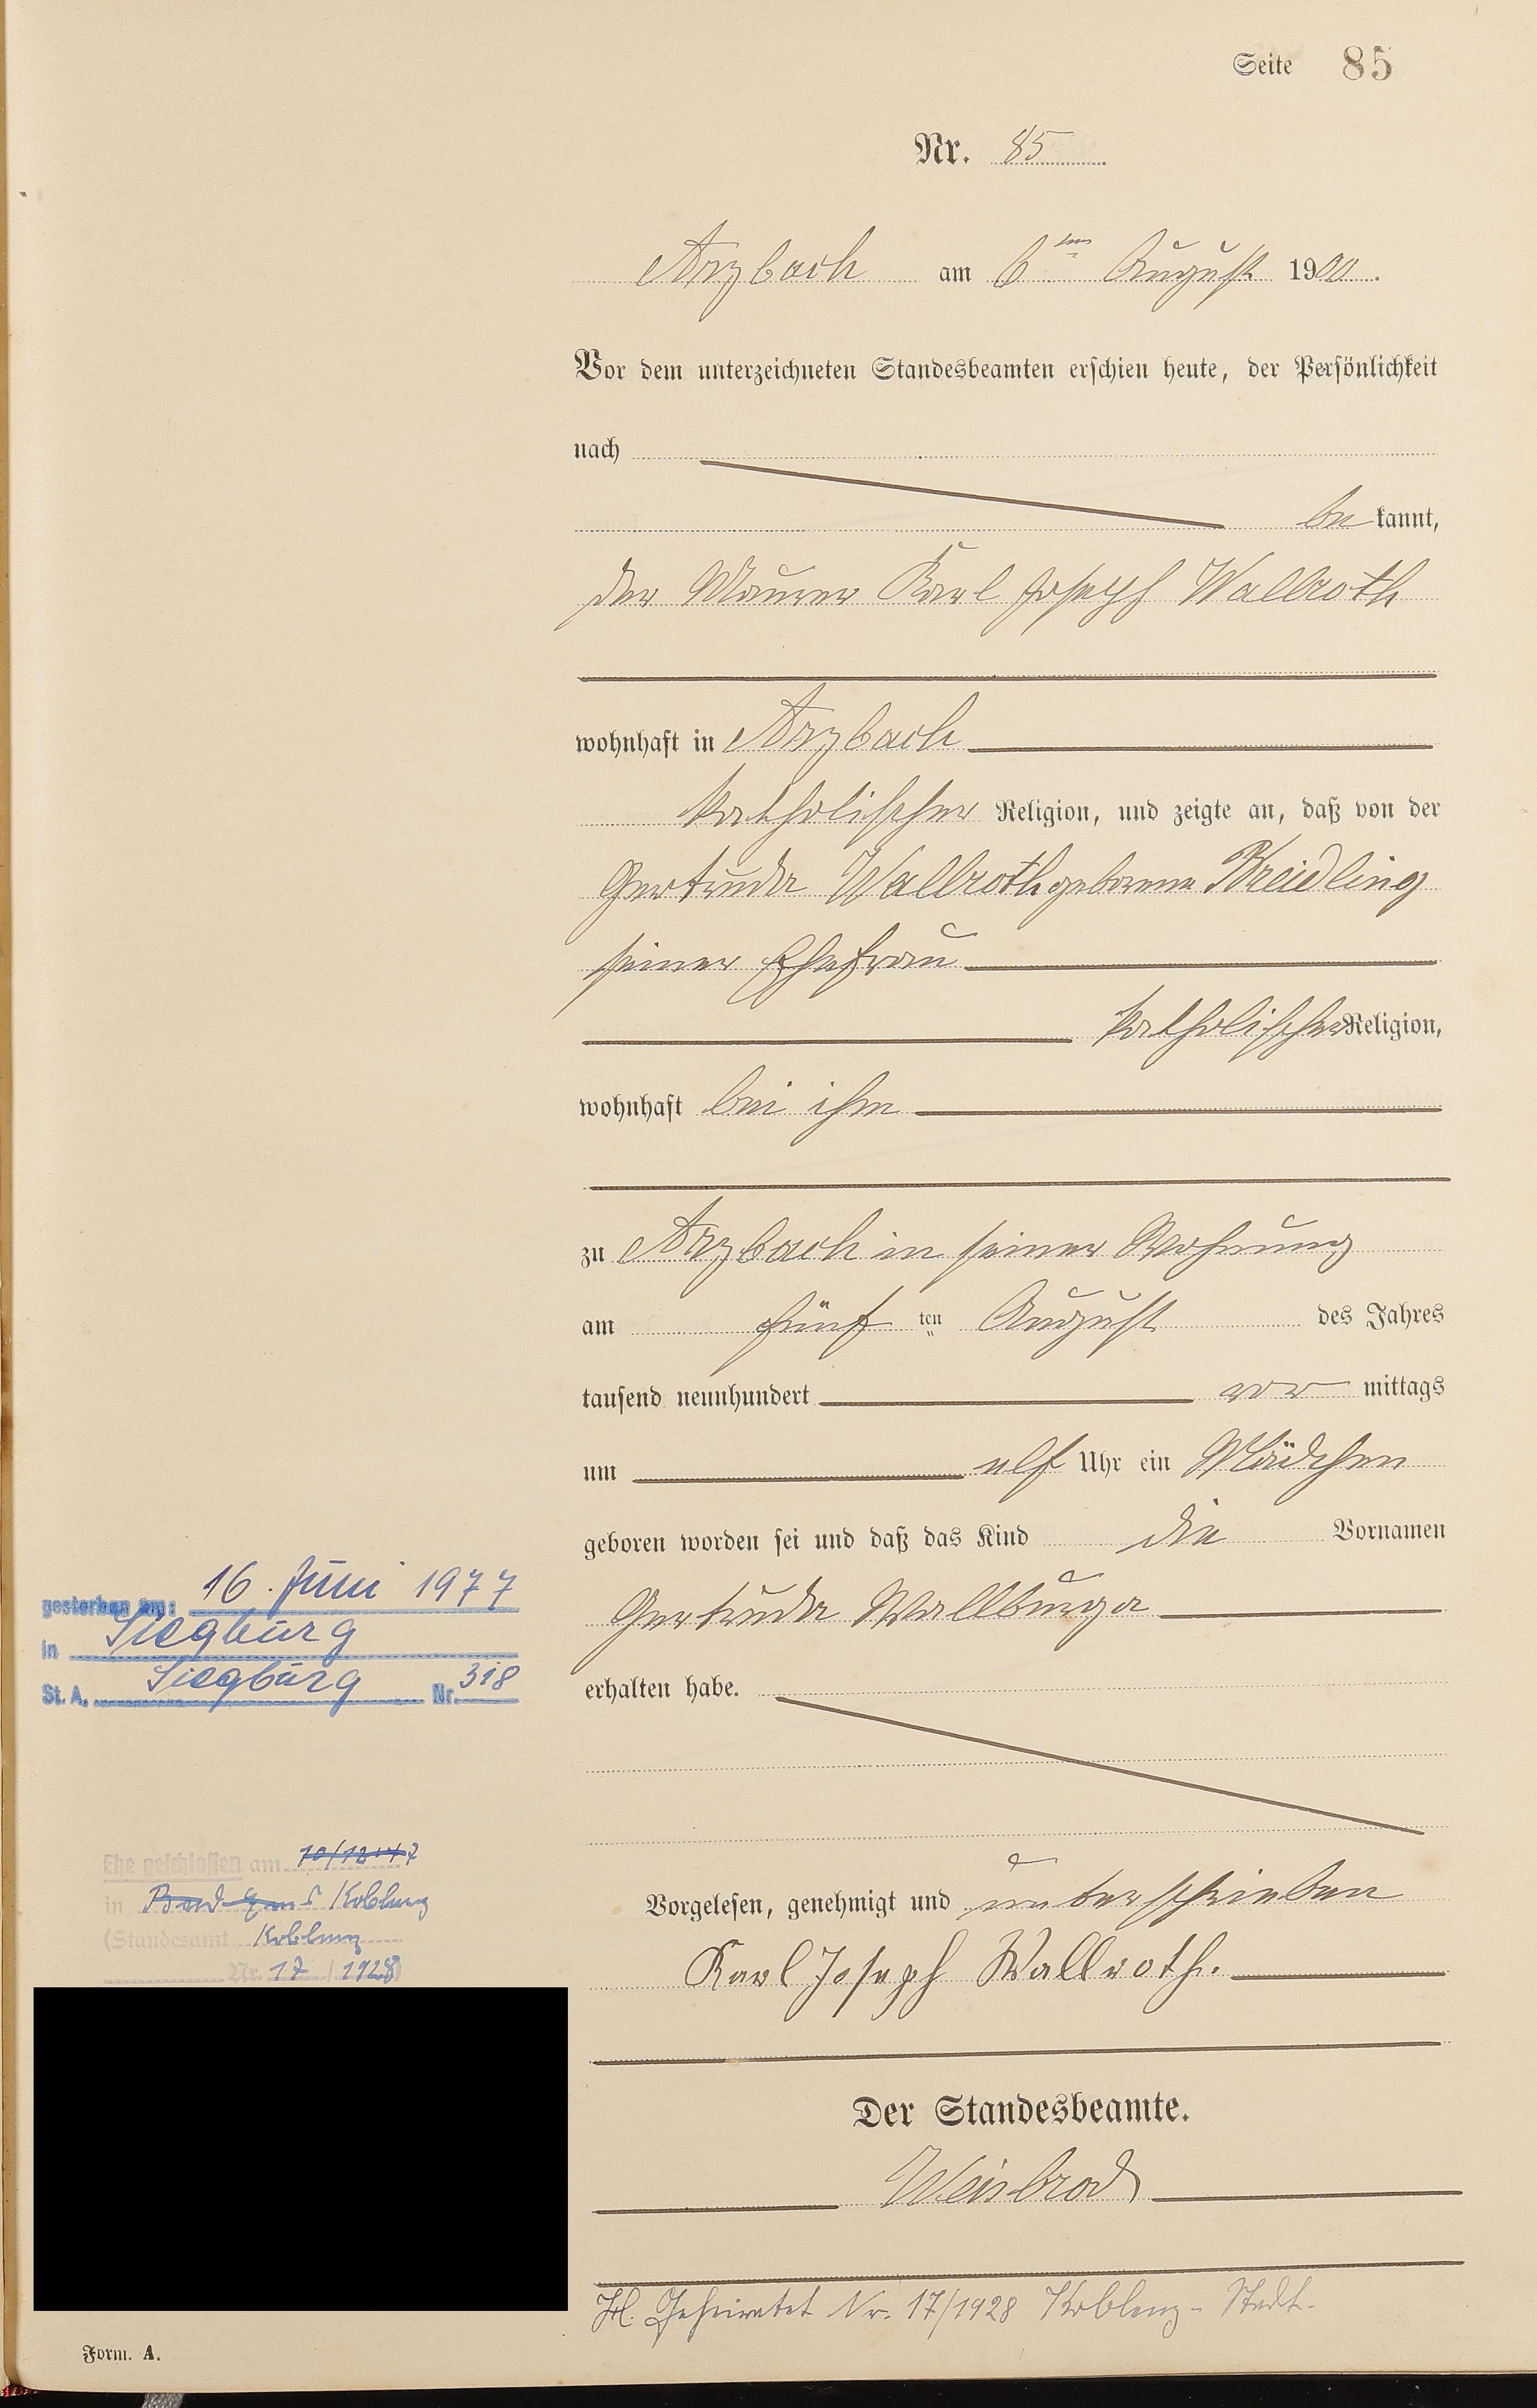 Seite 85
Nr. 85
Arzbach am 6ten August 1900.
Vor dem unterzeichneten Standesbeamten erschien heute, der Persönlichkeit
nach
be kannt,
der Maurer Karl Joseph Wallroth
wohnhaft in Arzbach
katholischer Religion, und zeigte an, daß von der
Gertruda Wallroth geborene Kreidling
seiner Ehefrau
katholischer Religion,
wohnhaft bei ihm
zu Arzbach in seiner Wohnung
am fünf ten August des Jahres
tausend neunhundert vor mittags
um elf Uhr ein Mädchen
geboren worden sei und daß das Kind die Vornamen
Gertruda Wallburga
erhalten habe.
Vorgelesen, genehmigt und unterschrieben
Karl Joseph Wallroth.
Der Standesbeamte.
Weisbrod
H. Geheiratet Nr. 17/1928 Koblenz-Stadt.
gestorben am: 16. Juni 1977
in Siegburg
St. A. Siegburg Nr. 318
Ehe geschlossen am
in Koblenz
(Standesamt Koblenz
Nr. 17/1928)
Form. A.